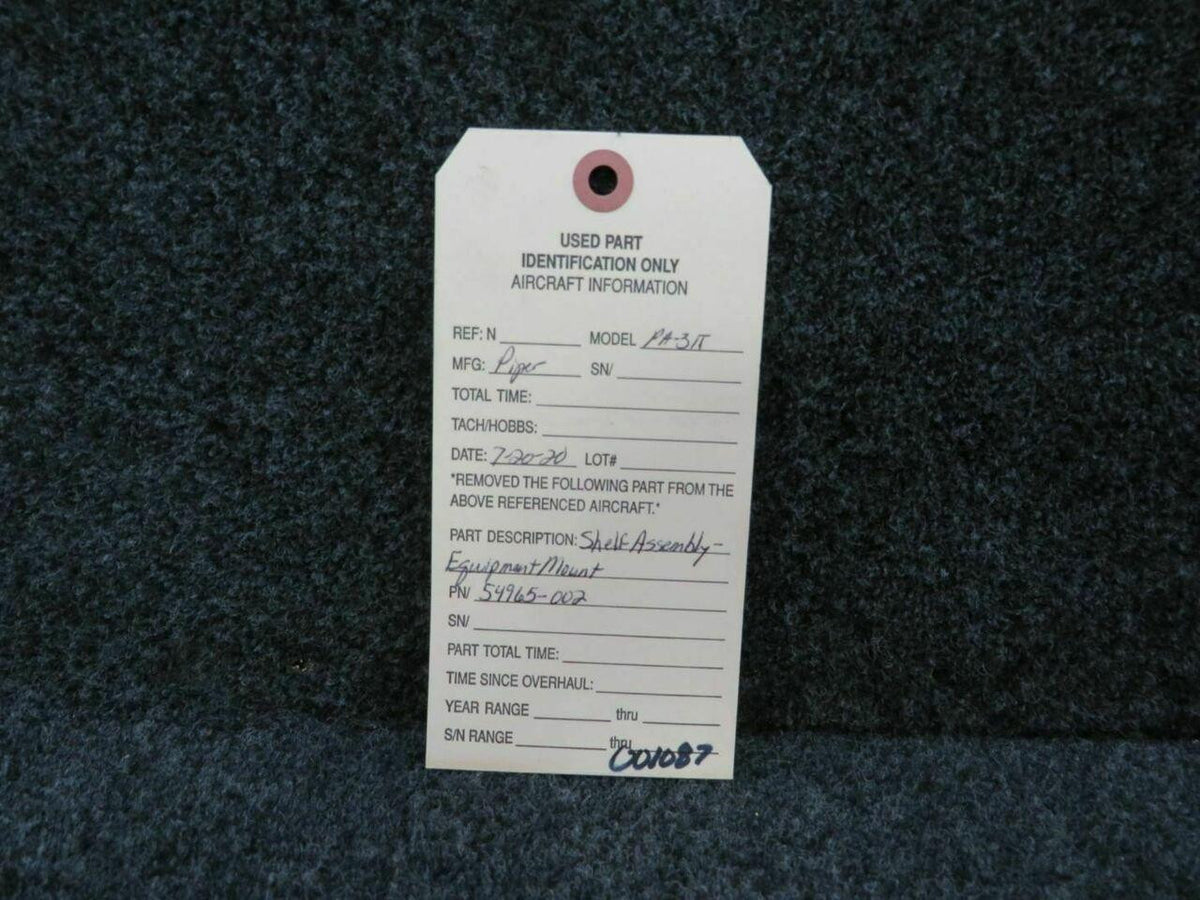 USED PART
IDENTIFICATION ONLY
AIRCRAFT INFORMATION
REF: N MODEL PA-31T
MFG: Piper SN/
TOTAL TIME:
TACH/HOBBS:
DATE: 7-20-20 LOT#
*REMOVED THE FOLLOWING PART FROM THE
ABOVE REFERENCED AIRCRAFT.*
PART DESCRIPTION: Shelf Assembly-
Equipment Mount
PN/ 54965-002
SN/
PART TOTAL TIME:
TIME SINCE OVERHAUL:
YEAR RANGE thru
S/N RANGE thru
001087